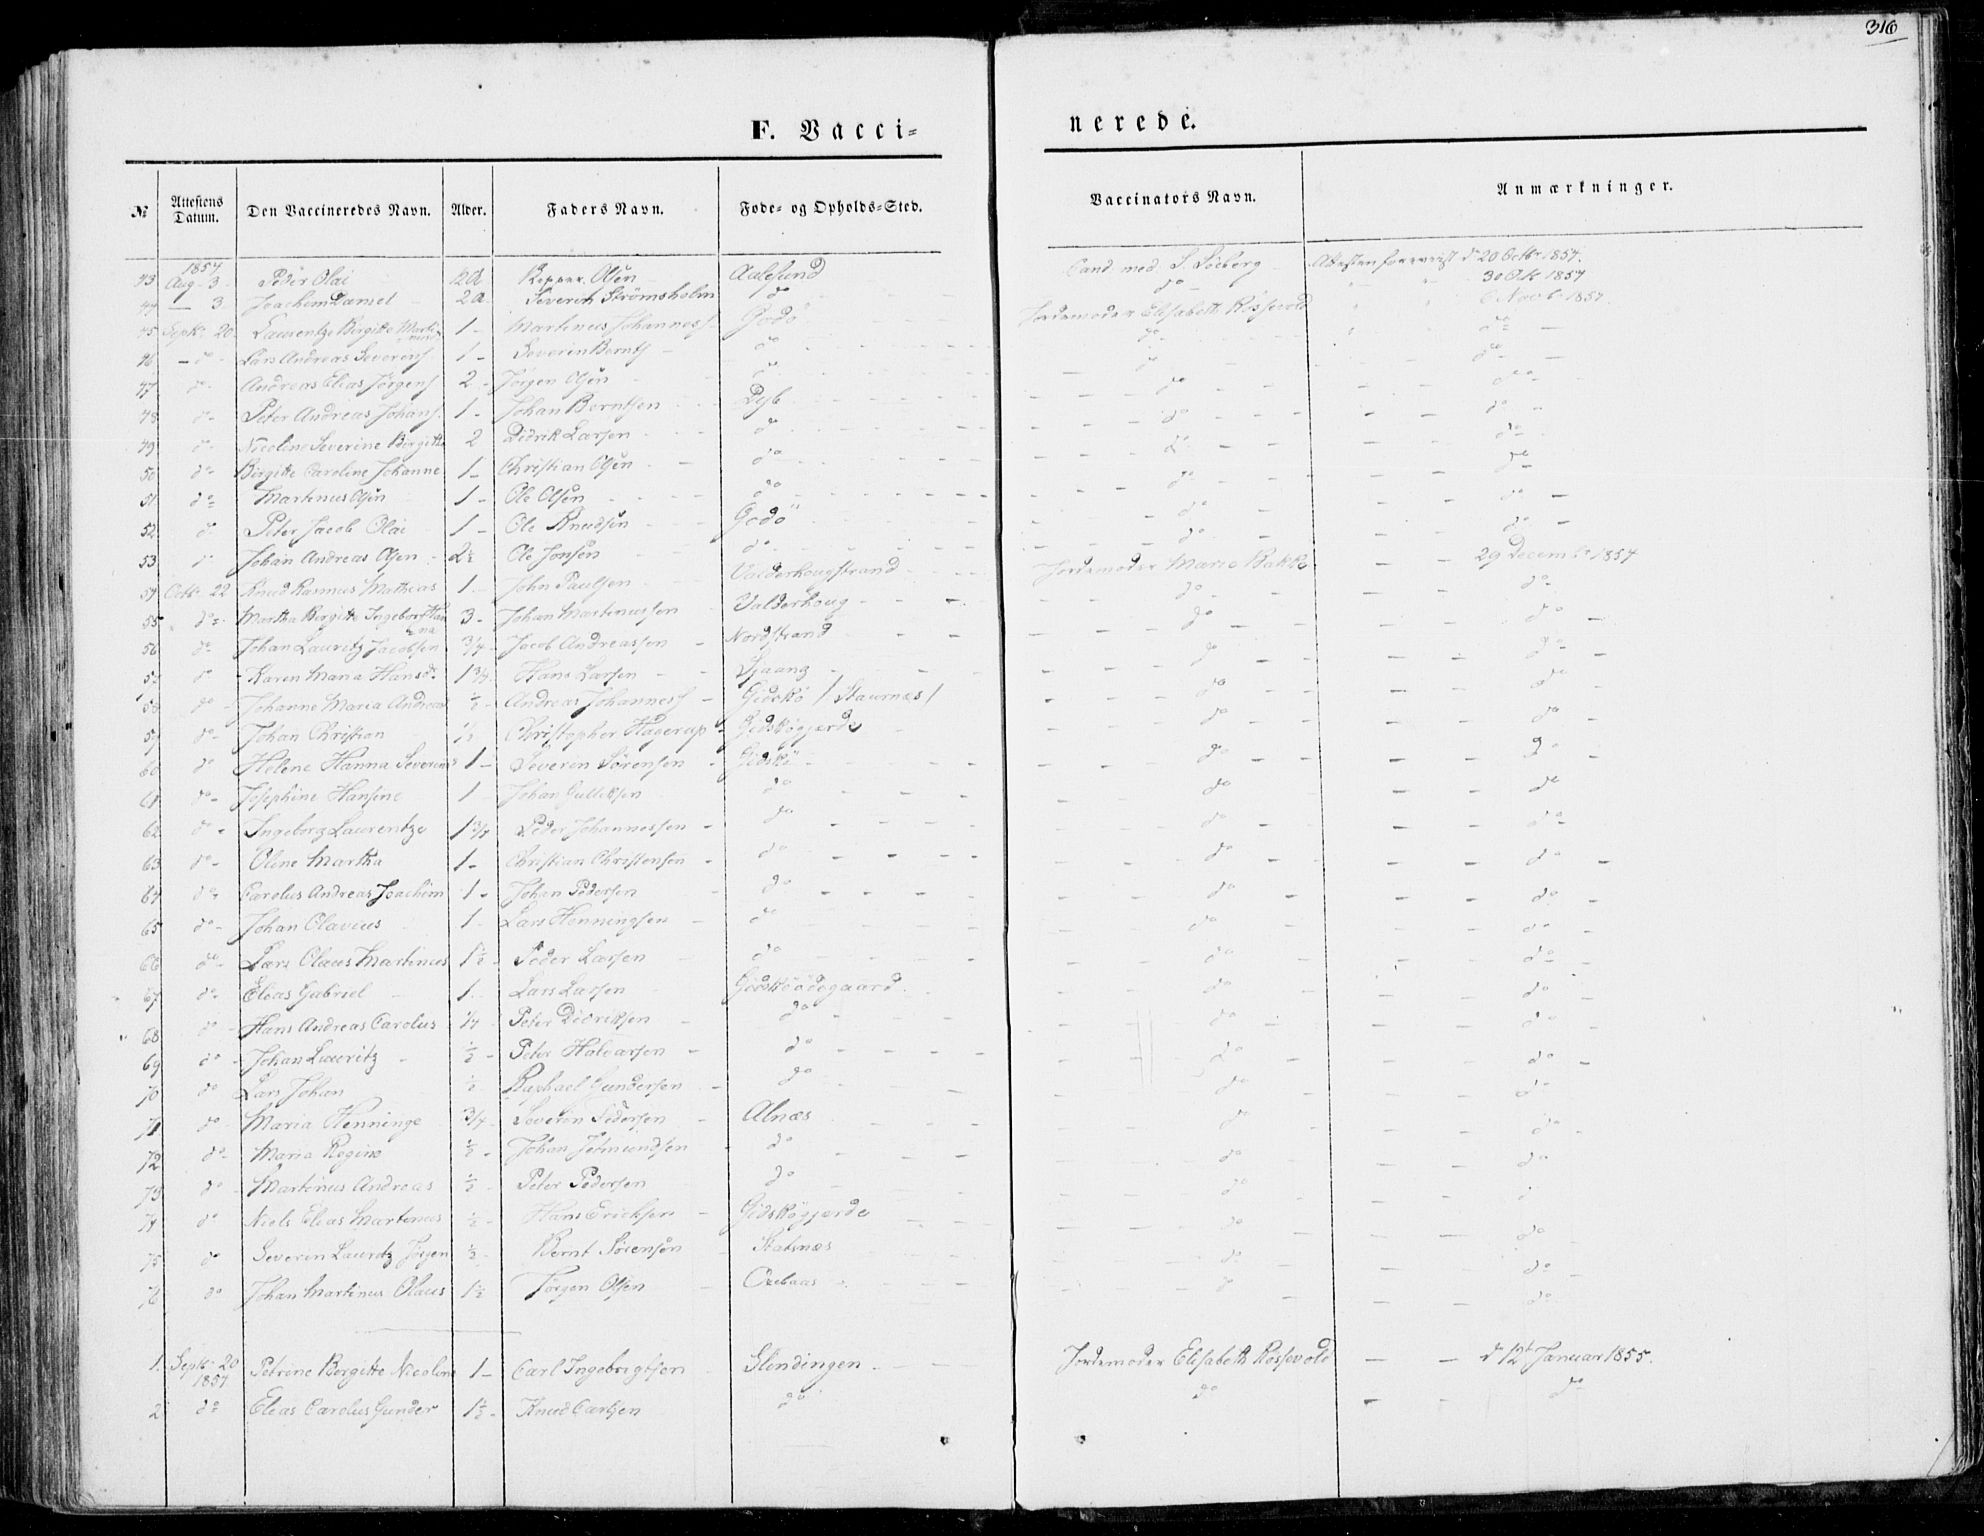 316
F. Vacci=
nerede.
No Attestens Datum. Den Vaccineredes Navn. Alder. Faders Navn. Føde- og Opholds-Sted. Vaccinators Navn. Anmærkninger.
1854
43 Aug. 3 Peder Olai 12 a Olsen Aalesund Cand. med. S. Söeberg Attesten foreviist d 20 Octbr 1854.
44 — 3 Joachim Daniel 2 a Severin Strömsholm do do 30 Ok 1854
45 Septr 20 Laurentze Birgitte 1 Martinus Johanness Godö Jordemoder Elisabeth Rössevold 6 Novbr 1854.
46 — do Lars Andreas Severens 1 Severin Bernts do do do
47 do Andreas Elias Jörgens 2 Jörgen Olsen do do do
48 do Peter Andreas Johans. 1 Johan Berntsen Dyb do do
49 do Nicoline Severine Birgitte 2 Didrik Larsen do do do
50 do Birgitte Caroline Johanne 1 Christian Olsen do do do
51 do Martinus Olsen 1 Ole Olsen do do do
52 do Peter Jacob Olai 1 Ole Knudsen Godö do do
53 do Johan Andreas Olsen 2½ Ole Jonsen do do do
54 Octbr 22 Knud Rasmus Mathias 1 John Paulsen Valderhougstrand Jordemoder Maria Bakke 29 Decembr 1854
55 do Martha Birgitte Ingeborg Hanna 3 Johan Martinussen Valderhoug do do
56 do Johan Lauritz Jacobsen 3/4 Jacob Andreassen Nordstrand do do
57 do Karen Maria Hansdr 1 3/4 Hans Larsen do do
58 do Johanne Maria Andreas ½ Andreas Johanness Gidskö / Staurnæs / do do
59 do Johan Christian ½ Christopher Hagerup Gidskögjærde do do
60 do Helene Hanna Severins 1 Severin Sörensen Gidskö do do
61 do Josephine Hansine 1 Johan Gulliksen do do do
62 do Ingeborg Laurentze 1 3/4 Peder Johannessen do do do
63 do Oline Martha 1 Christian Christensen do do do
64 do Carolus Andreas Joachim 1 Johan Pedersen do do do
65 do Johan Olavius 1 Lars Henningsen do do do
66 do Lars Olaus Martinus 1½ Peder Larsen do do do
67 do Elias Gabriel 1 Lars Larsen Gidsköödegaard do do
68 do Hans Andreas Carolus 1/4 Peter Didriksen do do do
69 do Johan Lauritz ½ Peter Halvarsen do do do
70 do Lars Johan ½ Raphael Gundersen do do do
71 do Maria Henninge 3/4 Severin Pedersen Alnæs do do
72 do Maria Regine ½ Johan Jetmundsen do do do
73 do Martinus Andreas ½ Peter Pedersen do do do
74 do Niels Elias Martinus ½ Hans Ericksen Gidskögjærde do do
75 do Severin Lauritz Jörgen ½ Bernt Sörensen Skatsnæs do do
76 do Johan Martinus Olaus 1½ Jörgen Olsen do do
1. Septr 20 1854 Petrine Birgitte Nicoline 1 Carl Ingebrigtsen Slindingen Jordemoder Elisabeth Rössevold — — d 12t Januar 1855.
2 do Elias Carolus Gunder 1½ Knud Carlsen do do do